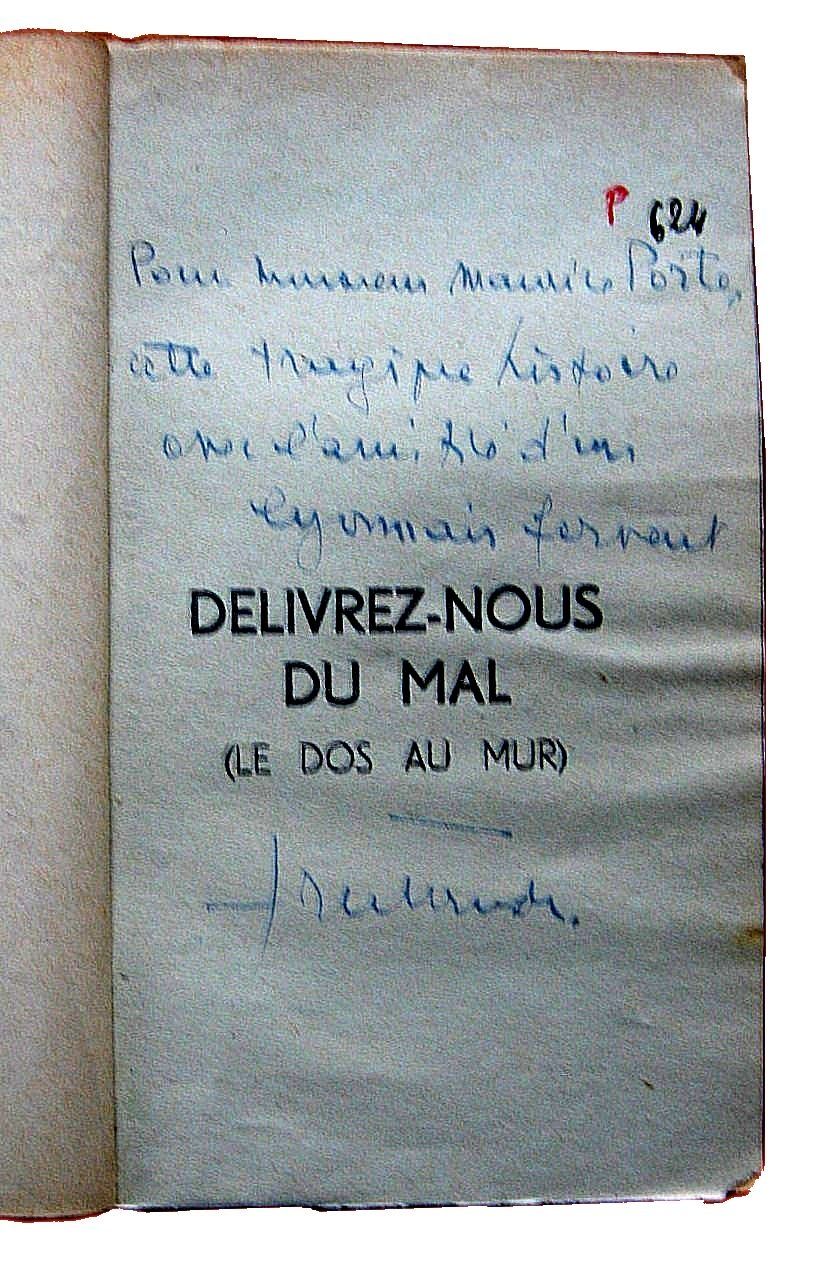 P 624
Pour monsieur Maurice Porte,
cette tragique histoire
avec l'amitié d'un
Lyonnais fervent
DELIVREZ-NOUS
DU MAL
(LE DOS AU MUR)